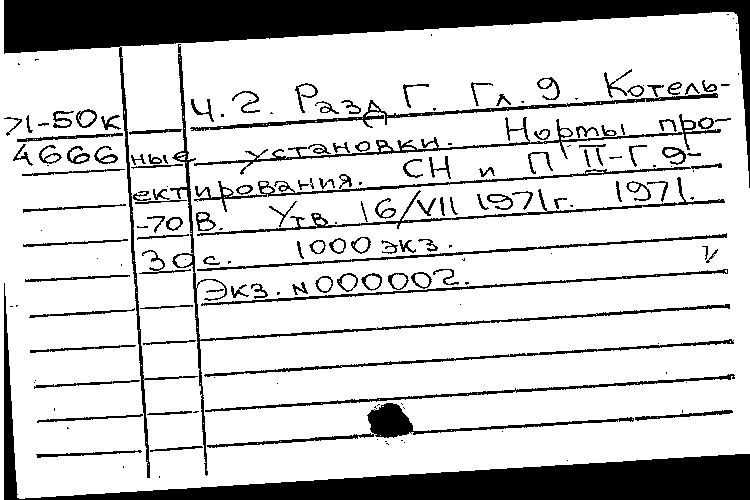 71-50к Ч. 2. Разд Г. Гл. 9. Котель-
4666 ные установки. Нормы про-
ектирования. СН и П II-Г. 9-
-70 В. Утв. 16/VII 1971г. 1971.
30 с. 1000 экз.
Экз. N 000002.